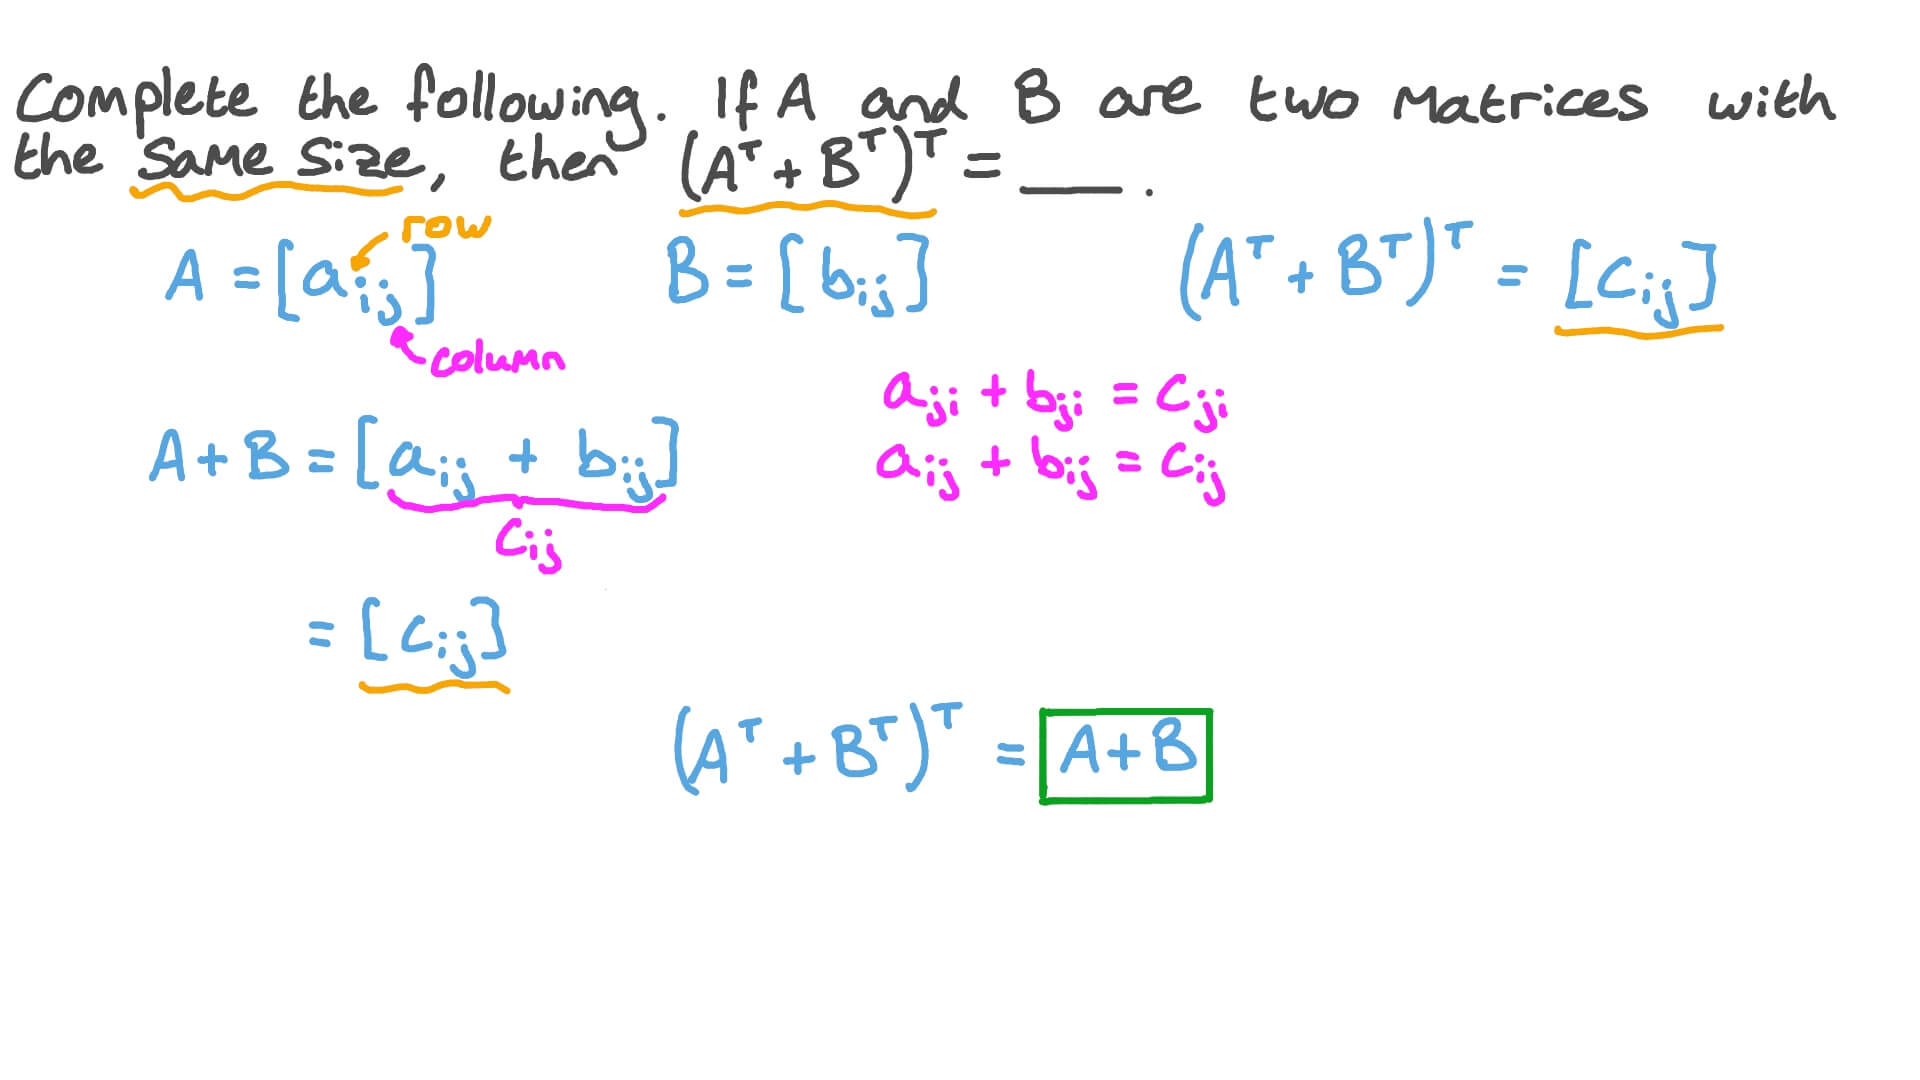 Complete the following. If A and B are two matrices with
the same size, then (Aᵀ + Bᵀ)ᵀ = ___ .
row
A = [aᵢⱼ] B = [bᵢⱼ] (Aᵀ + Bᵀ)ᵀ = [cᵢⱼ]
column
aⱼᵢ + bⱼᵢ = cⱼᵢ
A + B = [aᵢⱼ + bᵢⱼ] aᵢⱼ + bᵢⱼ = cᵢⱼ
cᵢⱼ
= [cᵢⱼ]
(Aᵀ + Bᵀ)ᵀ = A + B